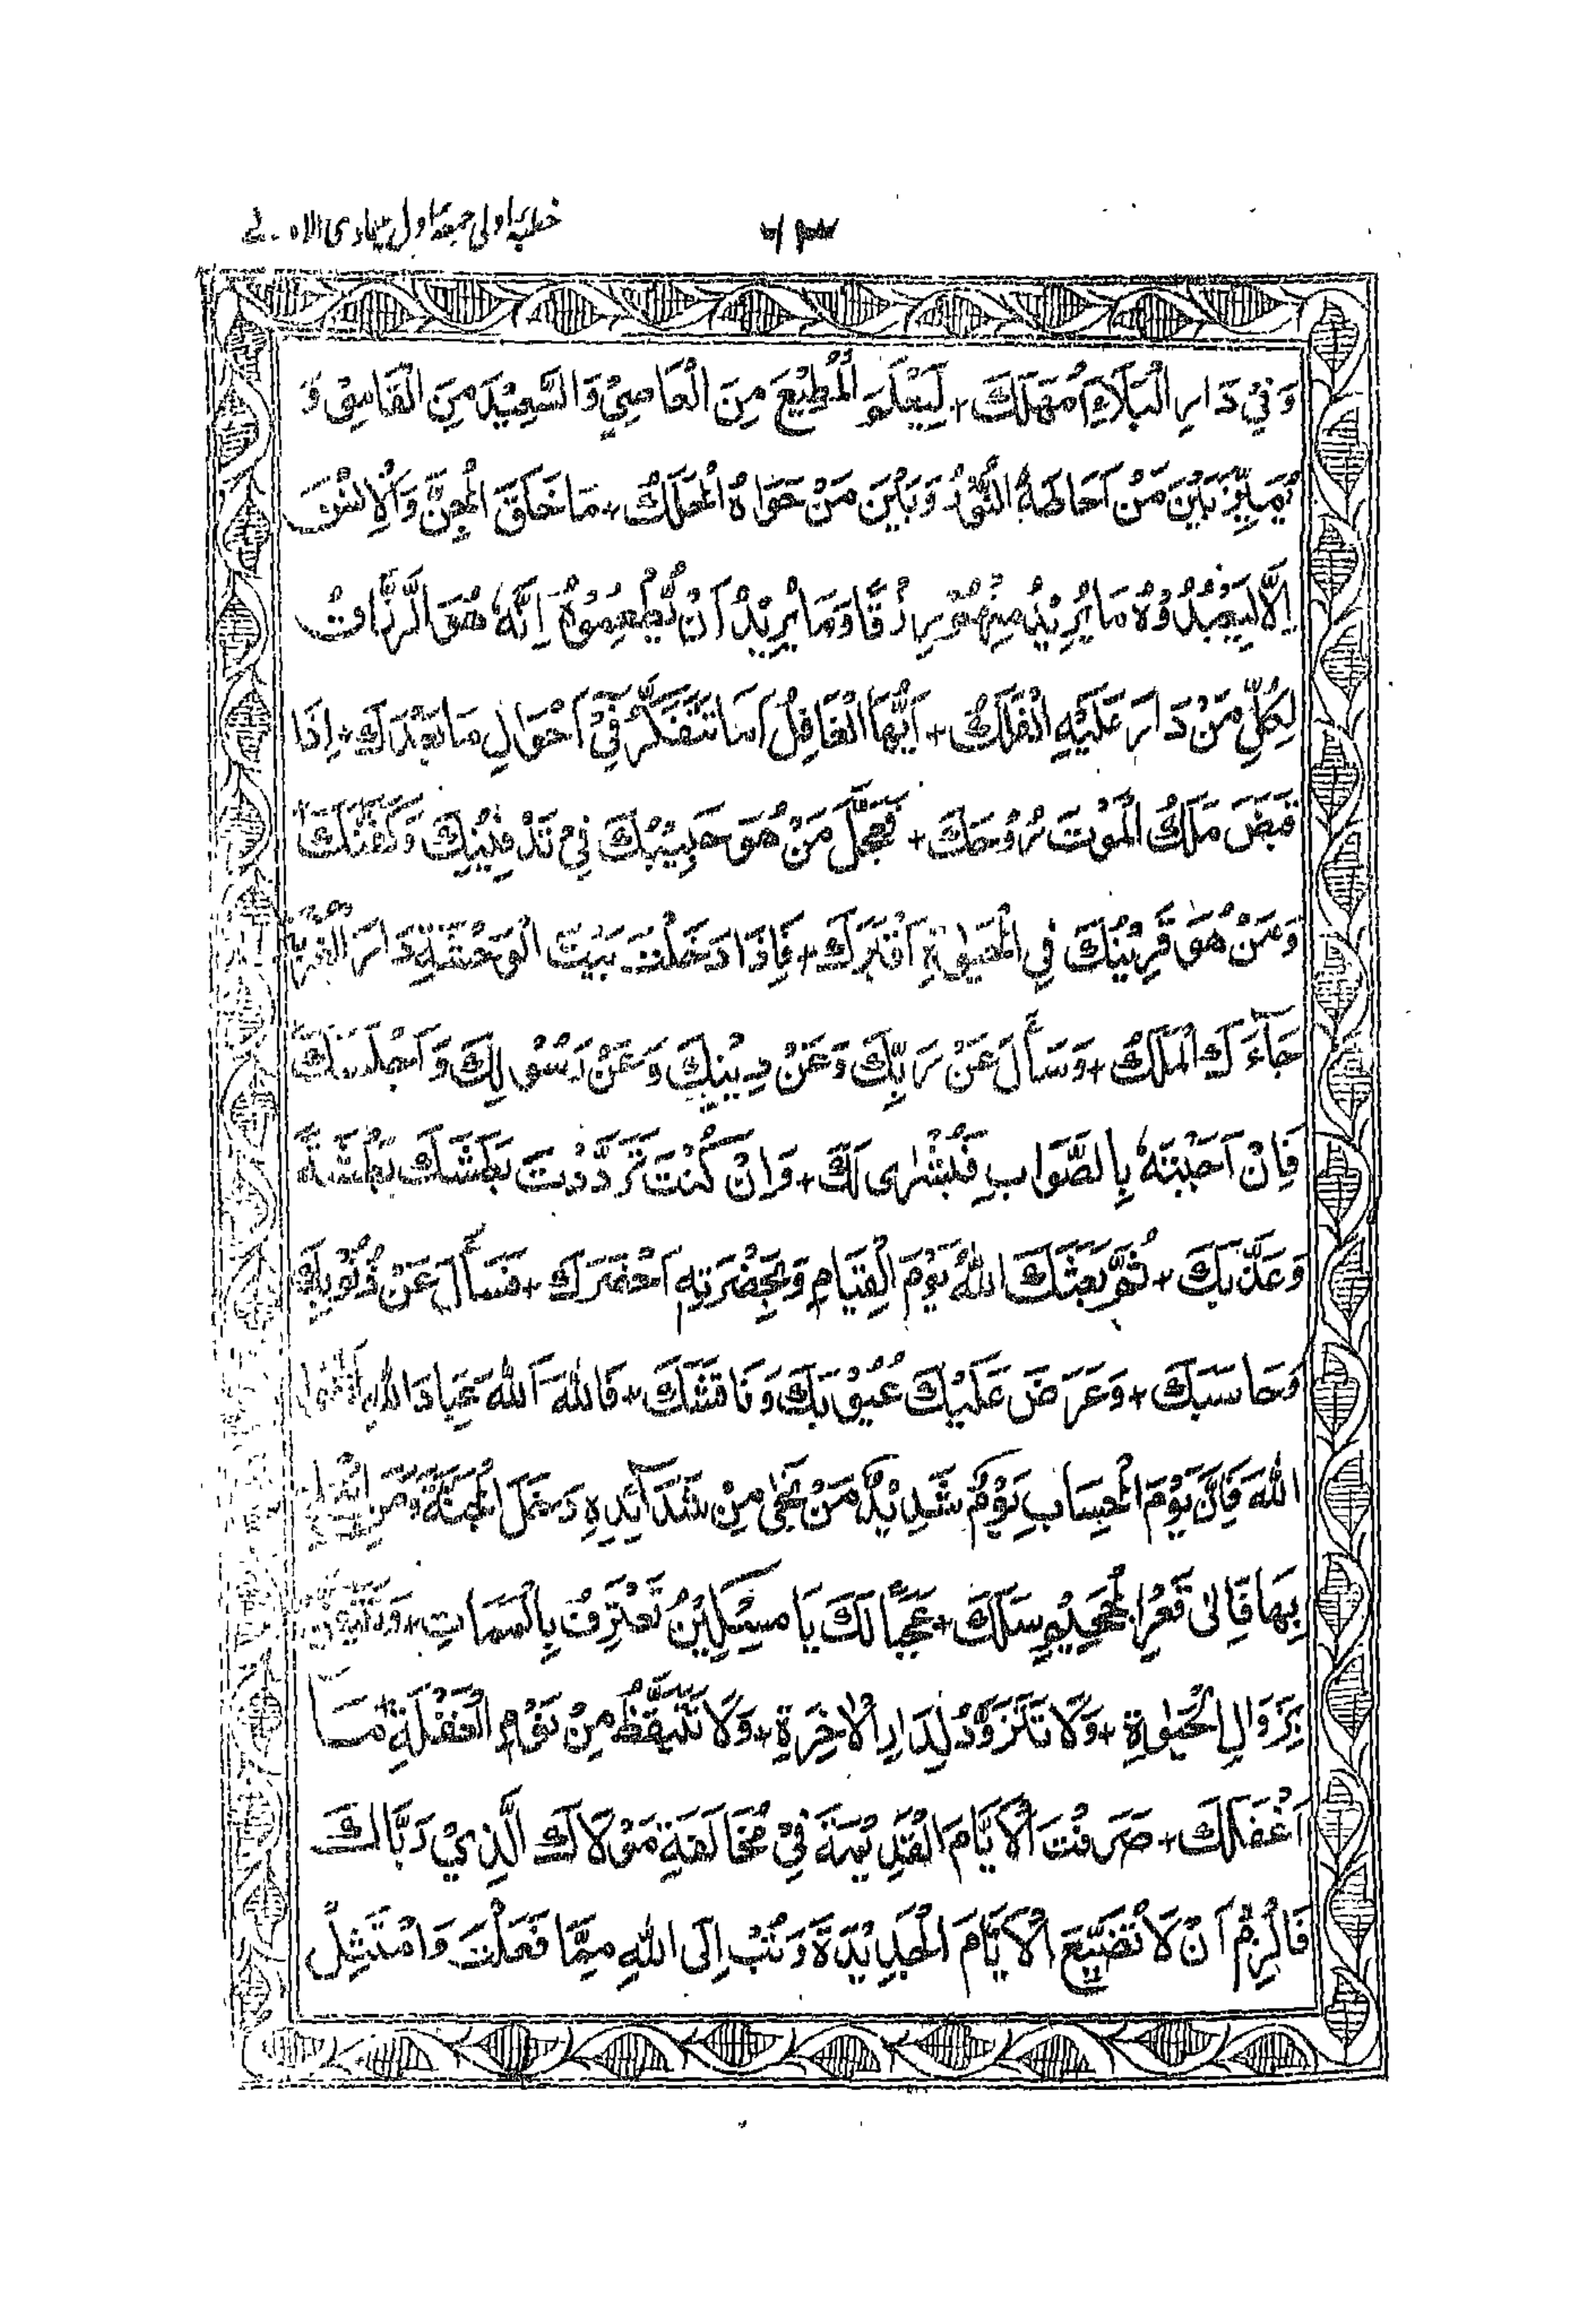 خطبہ اولی جمعہ اول جمادی الاولے
وَفِيْ دَارِ الْبَلَاءِ أَمْهَلَكَ + لِيَعْلَمَ الْمُطِيْعَ مِنَ الْعَاصِيْ وَالسَّعِيْدَ مِنَ الْفَاسِقِ وَ
يُمَيِّزَ بَيْنَ مَنْ اَحَاطَهُ النُّوْرُ وَبَيْنَ مَنْ حَوَاهُ الْحَلَكُ + مَا خَلَقَ الْجِنَّ وَالْاِنْسَ
اِلَّا لِيَعْبُدُوْهُ مَا يُرِيْدُ مِنْهُمْ رِزْقًا وَمَا يُرِيْدُ اَنْ يُّطْعِمُوْهُ اِنَّهٗ هُوَ الرَّزَّاقُ
لِكُلِّ مَنْ دَارَ عَلَيْهِ الْفَلَكُ + اَيُّهَا الْغَافِلُ اَمَا تَتَفَكَّرُ فِيْ اَحْوَالِ مَا بَعْدَكَ + اِذَا
قَبَضَ مَلَكُ الْمَوْتِ رُوْحَكَ + تَعَجَّلَ مَنْ هُوَ حَبِيْبُكَ فِيْ تَدْفِيْنِكَ وَكَفَنَكَ
وَمَنْ هُوَ قَرِيْنُكَ فِي الْحَيٰوةِ اَقْبَرَكَ + فَاِذَا دَخَلْتَ بَيْتَ الْوَحْشَةِ دَارَ الْغُرْبَةِ
جَآءَكَ الْمَلَكُ + وَسَأَلَ عَنْ رَبِّكَ وَعَنْ دِيْنِكَ وَعَنْ رَسُوْلِكَ وَاَجْلَسَكَ
فَاِنْ اَجَبْتَهٗ بِالصَّوَابِ فَبُشْرٰى لَكَ + وَاِنْ كُنْتَ تَرَدَّدْتَ بَطَشَكَ بَطْشَةً
وَعَذَّبَكَ + ثُمَّ بَعَثَكَ اللهُ يَوْمَ الْقِيَامِ وَبِحَضْرَتِهِ اَحْضَرَكَ + فَسَأَلَ عَنْ ذُنُوْبِكَ
وَحَاسَبَكَ + وَعَرَضَ عَلَيْكَ عُيُوْبَكَ وَنَاقَشَكَ + فَاللهَ اَللهَ عِبَادَ اللهِ اتَّقُوا
اللهَ فَاِنَّ يَوْمَ الْحِسَابِ يَوْمٌ شَدِيْدٌ مَنْ نَجٰى مِنْ شَدَآئِدِهِ دَخَلَ الْجَنَّةَ وَمَنِ ابْتُلِيَ
بِهَا فَاِلٰى قَعْرِ الْجَحِيْمِ سَلَكَ + عَجَبًا لَكَ يَا مِسْكِيْنُ تَعْتَرِفُ بِالْمَمَاتِ +
بِزَوَالِ الْحَيٰوةِ + وَلَا تَتَزَوَّدُ لِدَارِ الْاٰخِرَةِ + وَلَا تَتَيَقَّظُ مِنْ نَوْمِ الْغَفْلَةِ مَا
اَغْفَلَكَ + صَرَفْتَ الْاَيَّامَ الْقَدِيْمَةَ فِيْ مُخَالَفَةِ مَوْلَاكَ الَّذِيْ رَبَّاكَ
فَالْزِمْ اَنْ لَا تُضَيِّعَ الْاَيَّامَ الْجَدِيْدَةَ وَتُبْ اِلَى اللهِ مِمَّا فَعَلْتَ وَامْتَثِلْ